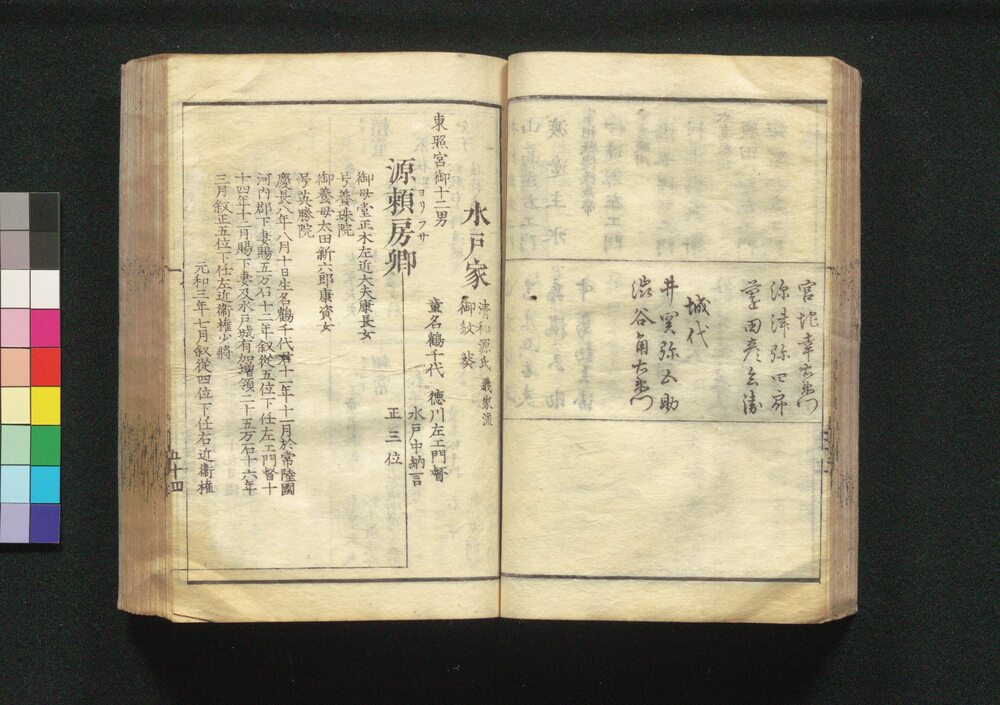 宮地幸右衛門
弥津弥一郎
蘆田彦兵衛
城代
井実弥五助
渋谷角右衛門
水戸家
清和源氏 義家流
御紋 葵
東照宮御十二男
源頼房卿
ヨリフサ
童名鶴千代 徳川左工門督
水戸中納言
正三位
御母堂正木左近大夫康長女
号養珠院
御養母太田新六郎康資女
号英勝院
慶長八年八月十日生名鶴千代君十一年十一月於常陸國
河内郡下妻賜五万石十二年叙從五位下任左工門督十
十四年十二月賜下妻及水戸城有加増領二十五万石十六年
三月叙正五位下任左近衞権少將
元和三年七月叙從四位下任右近衞権
五十四